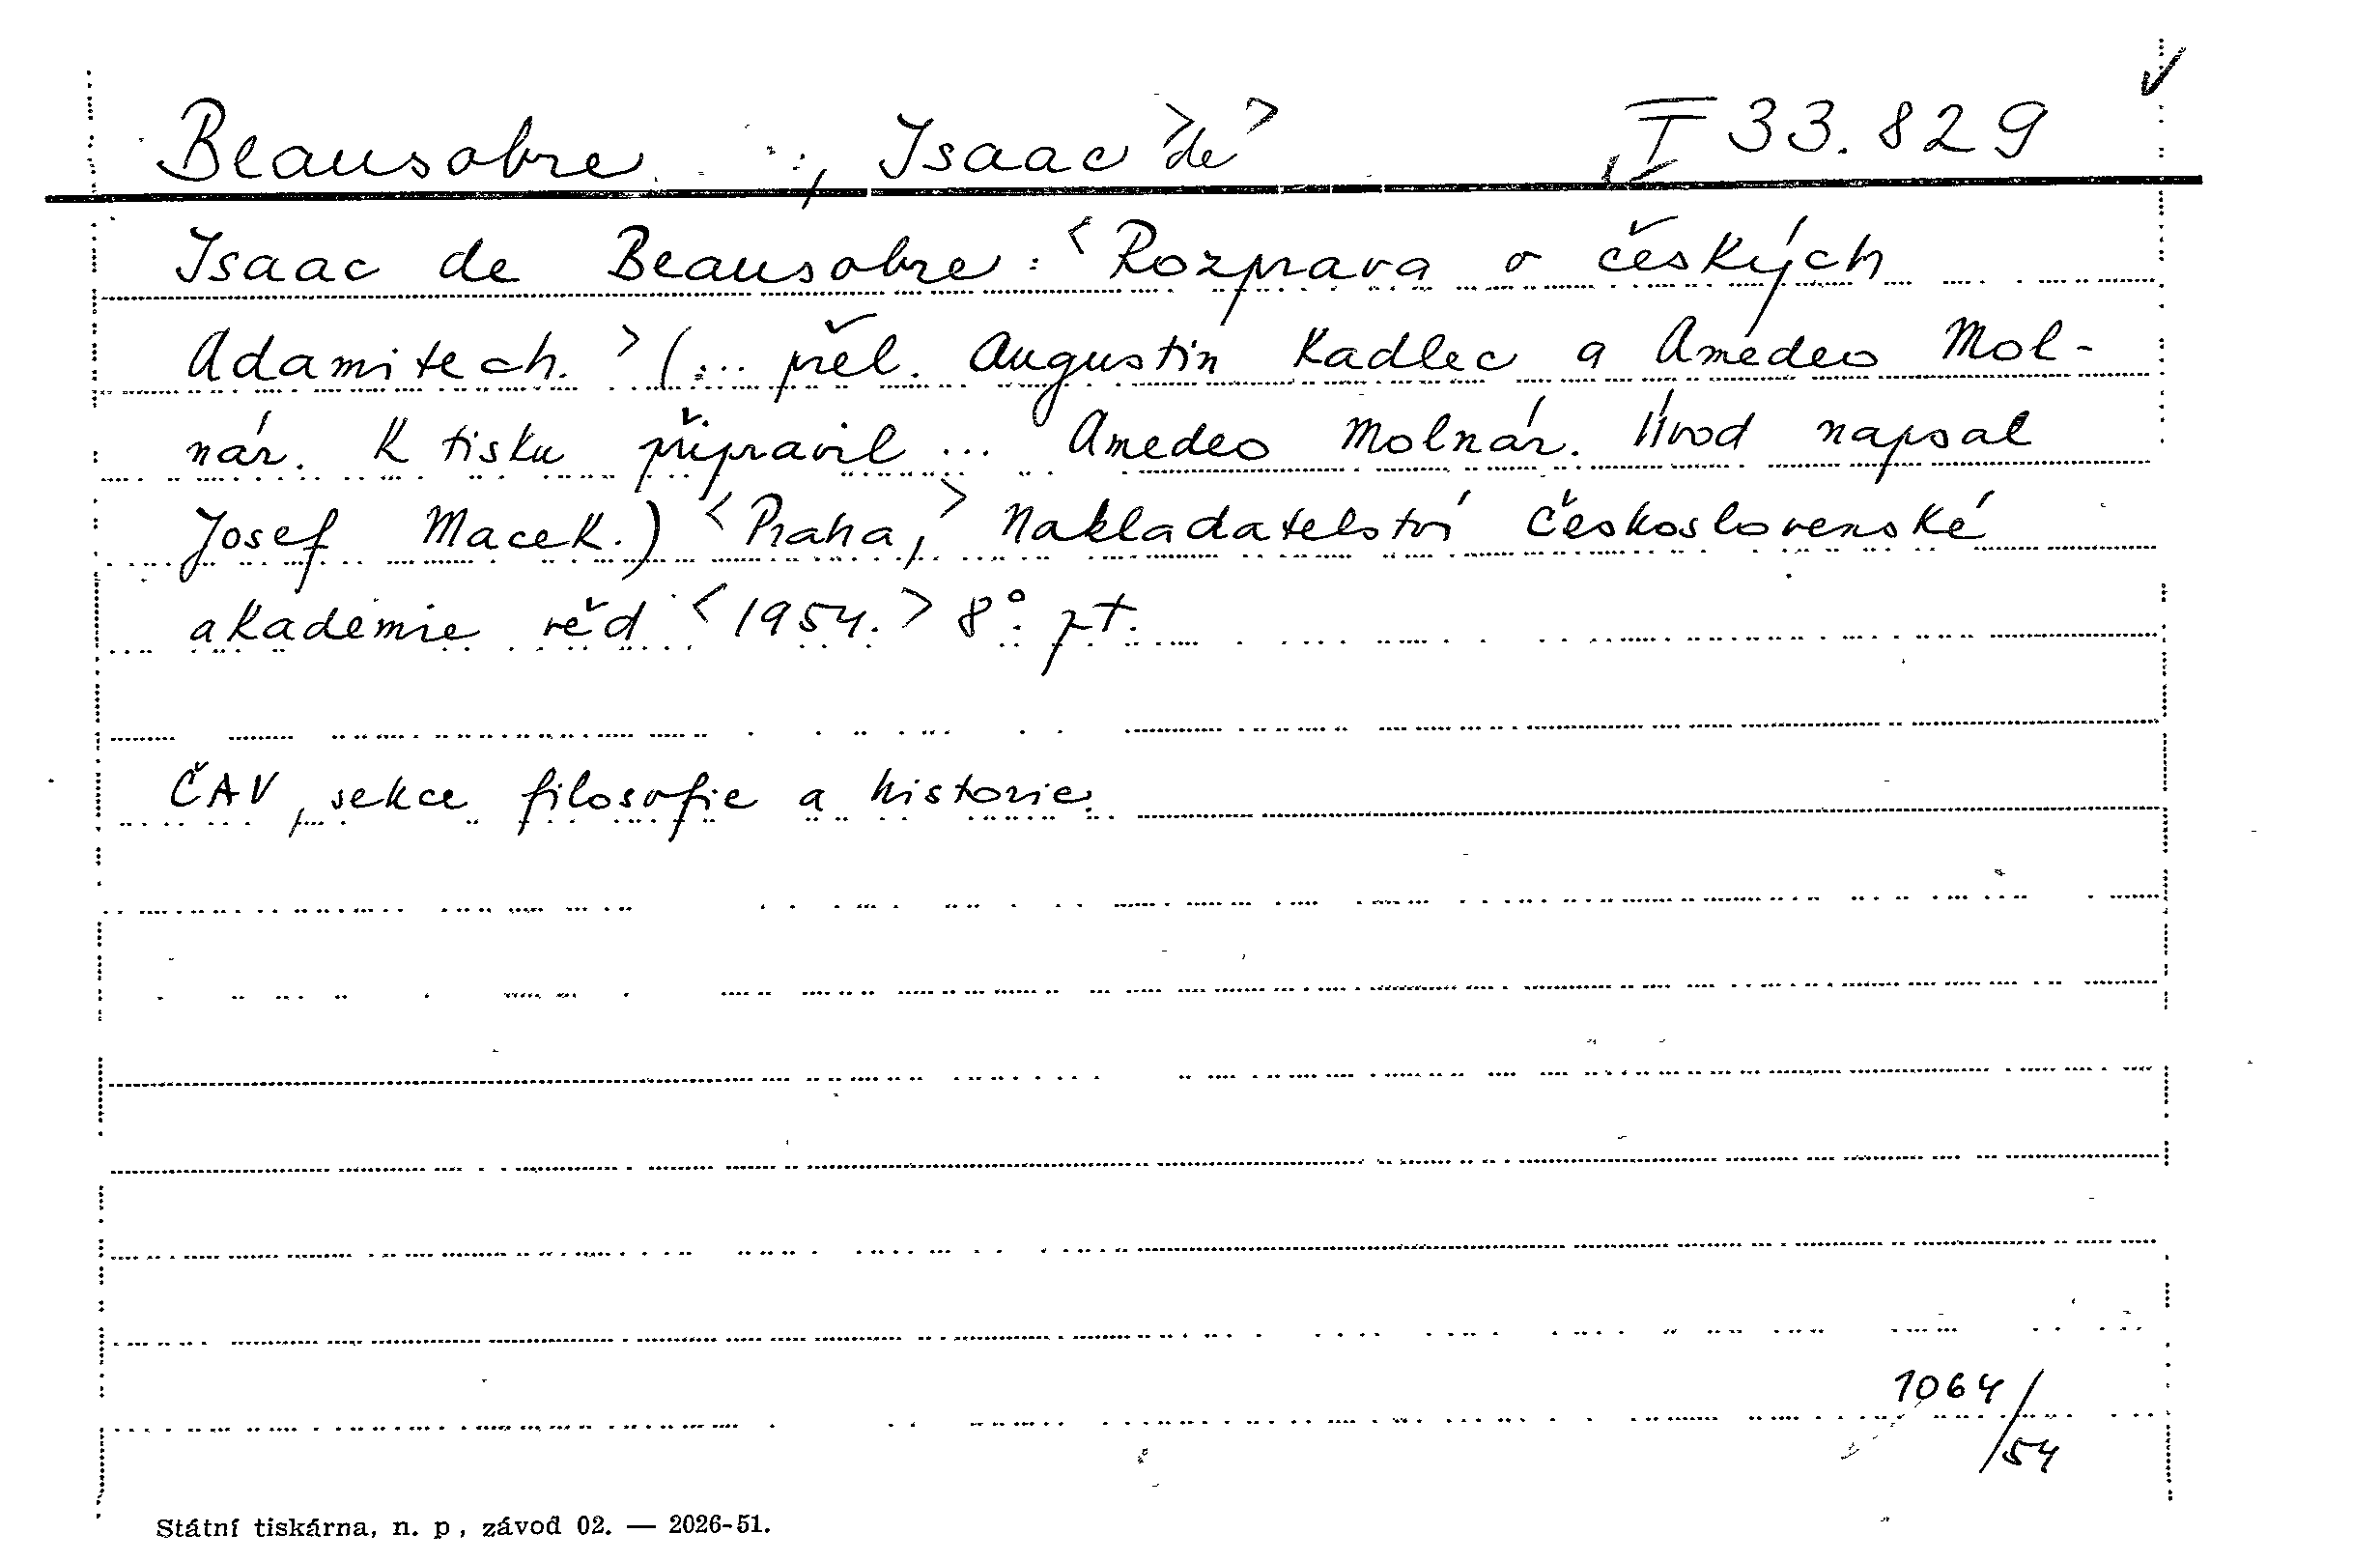 Beausobre, Isaac >de> I 33.829
Isaac de Beausobre: <Rozprava o českých
Adamitech.> (... přel. Augustin Kadlec a Amedeo Mol-
nár. K tisku připravil ... Amedeo Molnár. Úvod napsal
Josef Macek.) <Praha,> Nakladatelství Československé
akademie věd <1954.> 8°. pt.
ČAV, sekce filosofie a historie.
1064/54
Státní tiskárna, n. p., závod 02. — 2026-51.